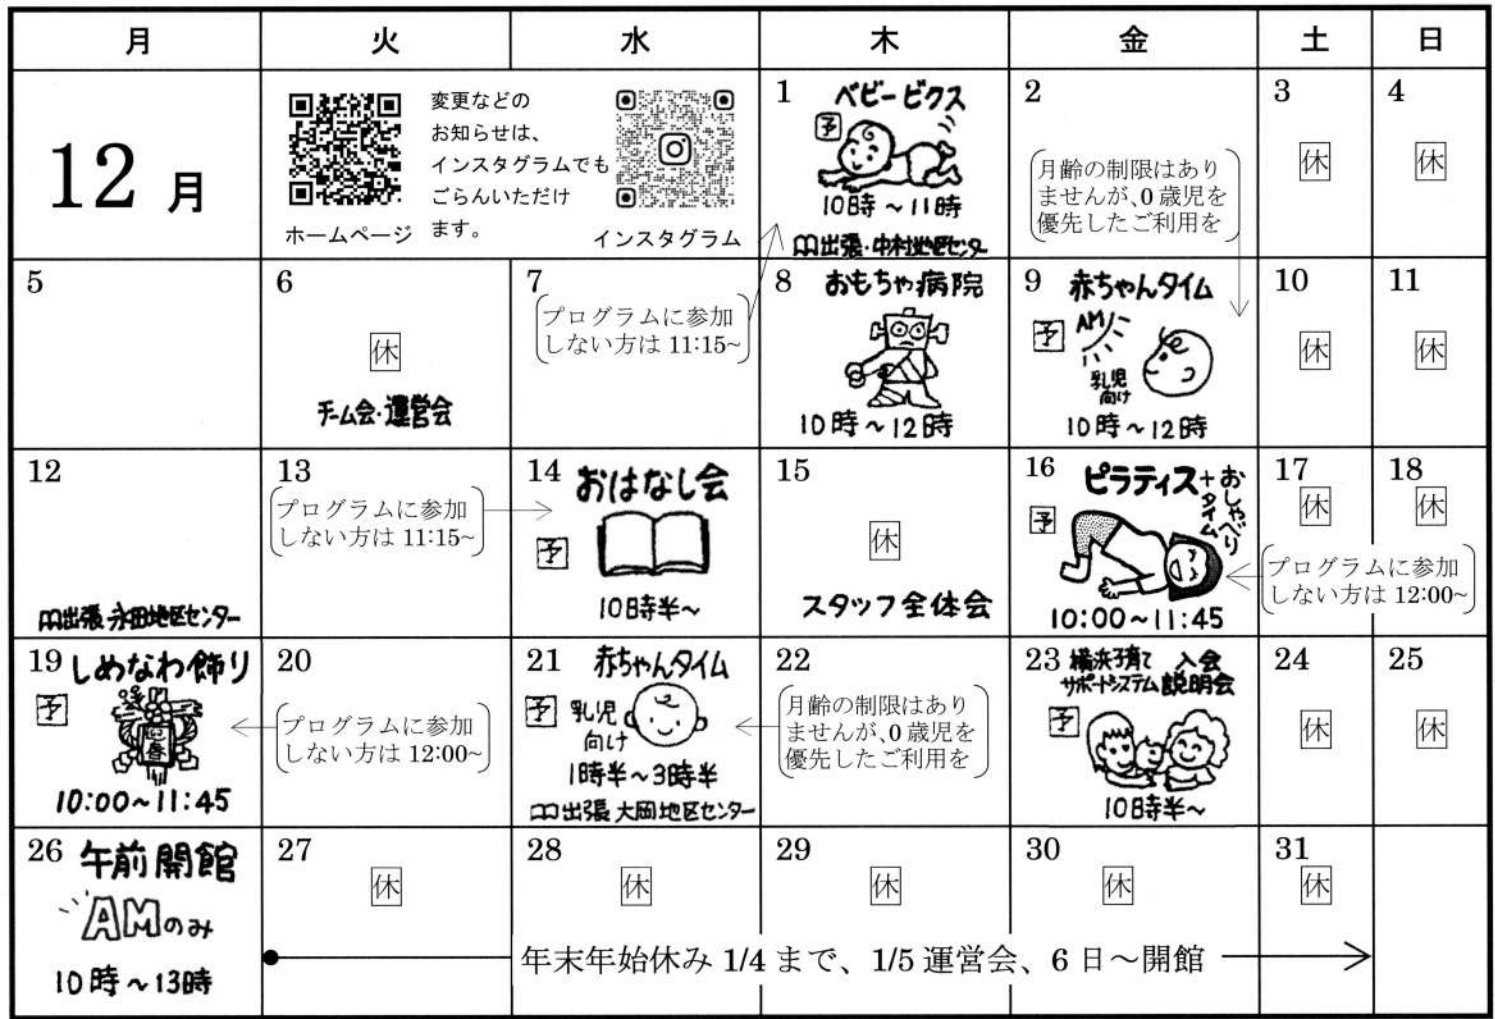 月 火 水 木 金 土 日
12月
変更などの
お知らせは、
インスタグラムでも
ごらんいただけ
ます。
ホームページ
インスタグラム
1 ベビービクス
予
10時~11時
出張・中村地区センター
2
月齢の制限はあり
ませんが、0歳児を
優先したご利用を
3
休
4
休
5
6
休
チーム会・運営会
7
プログラムに参加
しない方は 11:15~
8 おもちゃ病院
10時~12時
9 赤ちゃんタイム
予
AM
乳児
向け
10時~12時
10
休
11
休
12
出張 永田地区センター
13
プログラムに参加
しない方は 11:15~
14 おはなし会
予
10時半~
15
休
スタッフ全体会
16 ピラティス+おしゃべり
タイム
予
10:00~11:45
17
休
18
休
プログラムに参加
しない方は 12:00~
19 しめなわ飾り
予
10:00~11:45
20
プログラムに参加
しない方は 12:00~
21 赤ちゃんタイム
予
乳児
向け
1時半~3時半
出張 大岡地区センター
22
月齢の制限はあり
ませんが、0歳児を
優先したご利用を
23 横浜子育て 入会
サポートシステム 説明会
予
10時半~
24
休
25
休
26 午前開館
AMのみ
10時~13時
27
休
28
休
29
休
30
休
31
休
年末年始休み 1/4 まで、1/5 運営会、6 日~開館